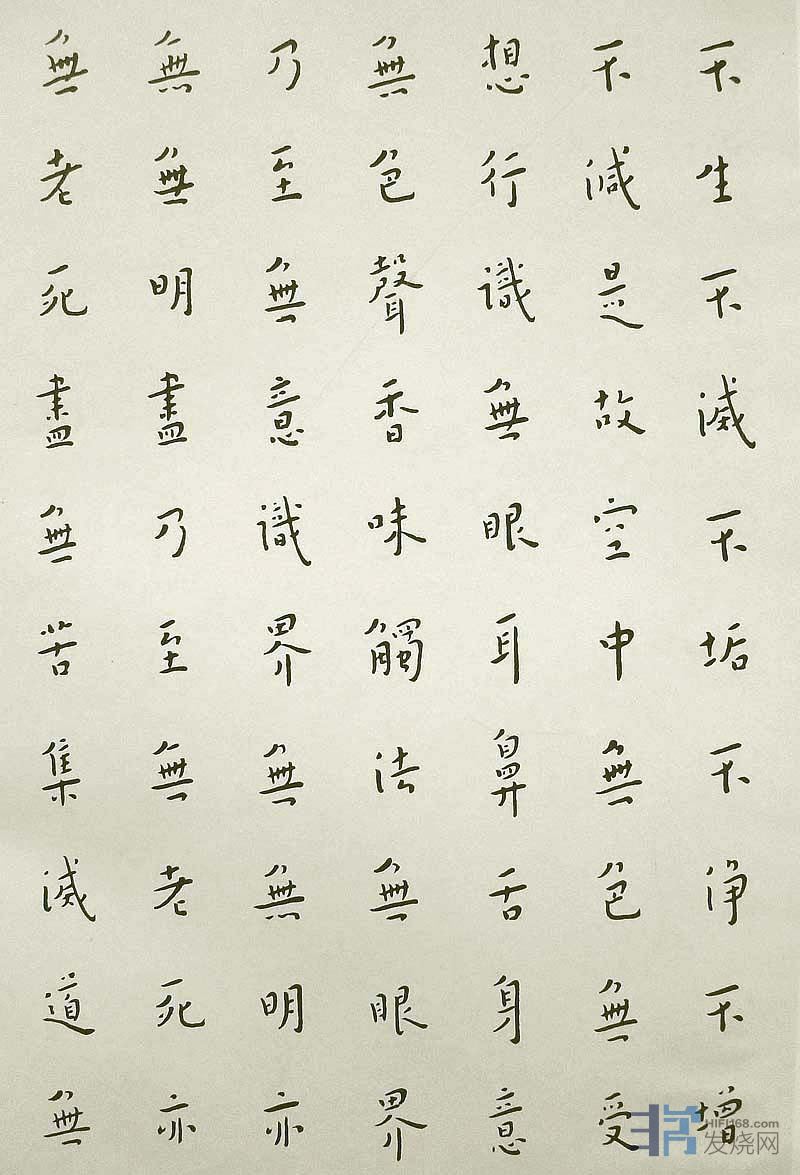 不生不滅不垢不淨不增
不減是故空中無色無受
想行識無眼耳鼻舌身意
無色聲香味觸法無眼界
乃至無意識界無無明亦
無無明盡乃至無老死亦
無老死盡無苦集滅道無
HIFI168.com
发烧网